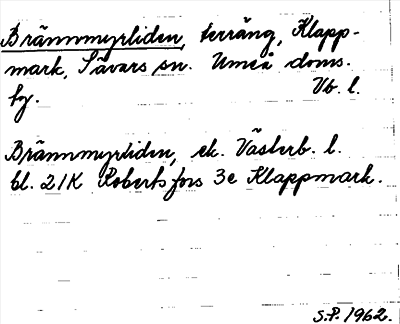 Brännmyrliden, terräng, Klapp-
mark, Sävars sn. Umeå doms.
fg. Vb. l.
Brännmyrliden, ek. Västerb. l.
bl. 21K Robertsfors 3e Klappmark.
S.P. 1962.